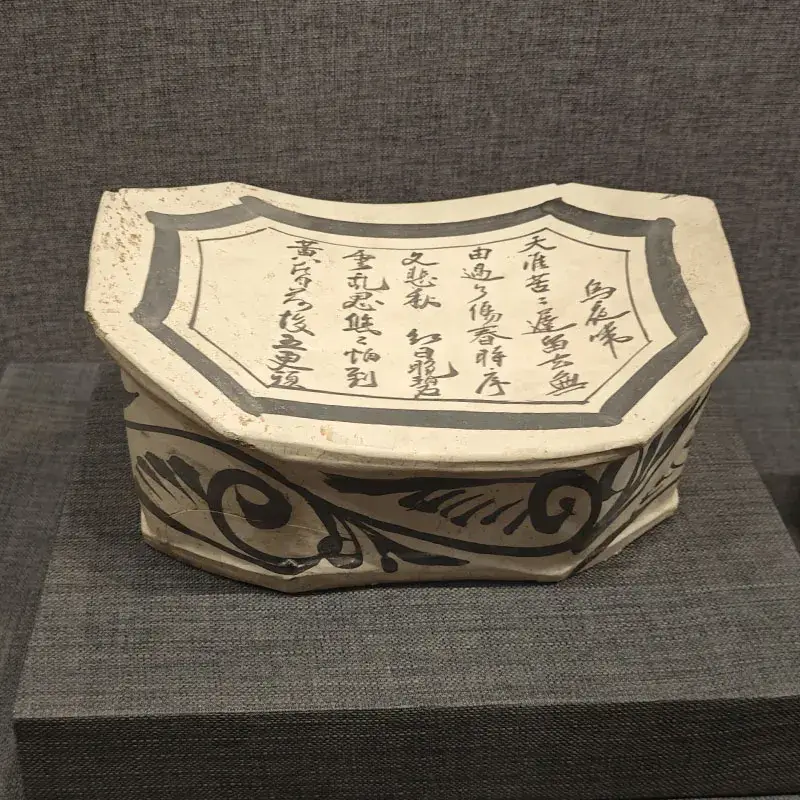 烏夜啼
天涯苦〻遲留去無
由過了傷春時序
又悲秋 紅日晚碧
雲亂思悠〻怕到
黃昏前後五更頭